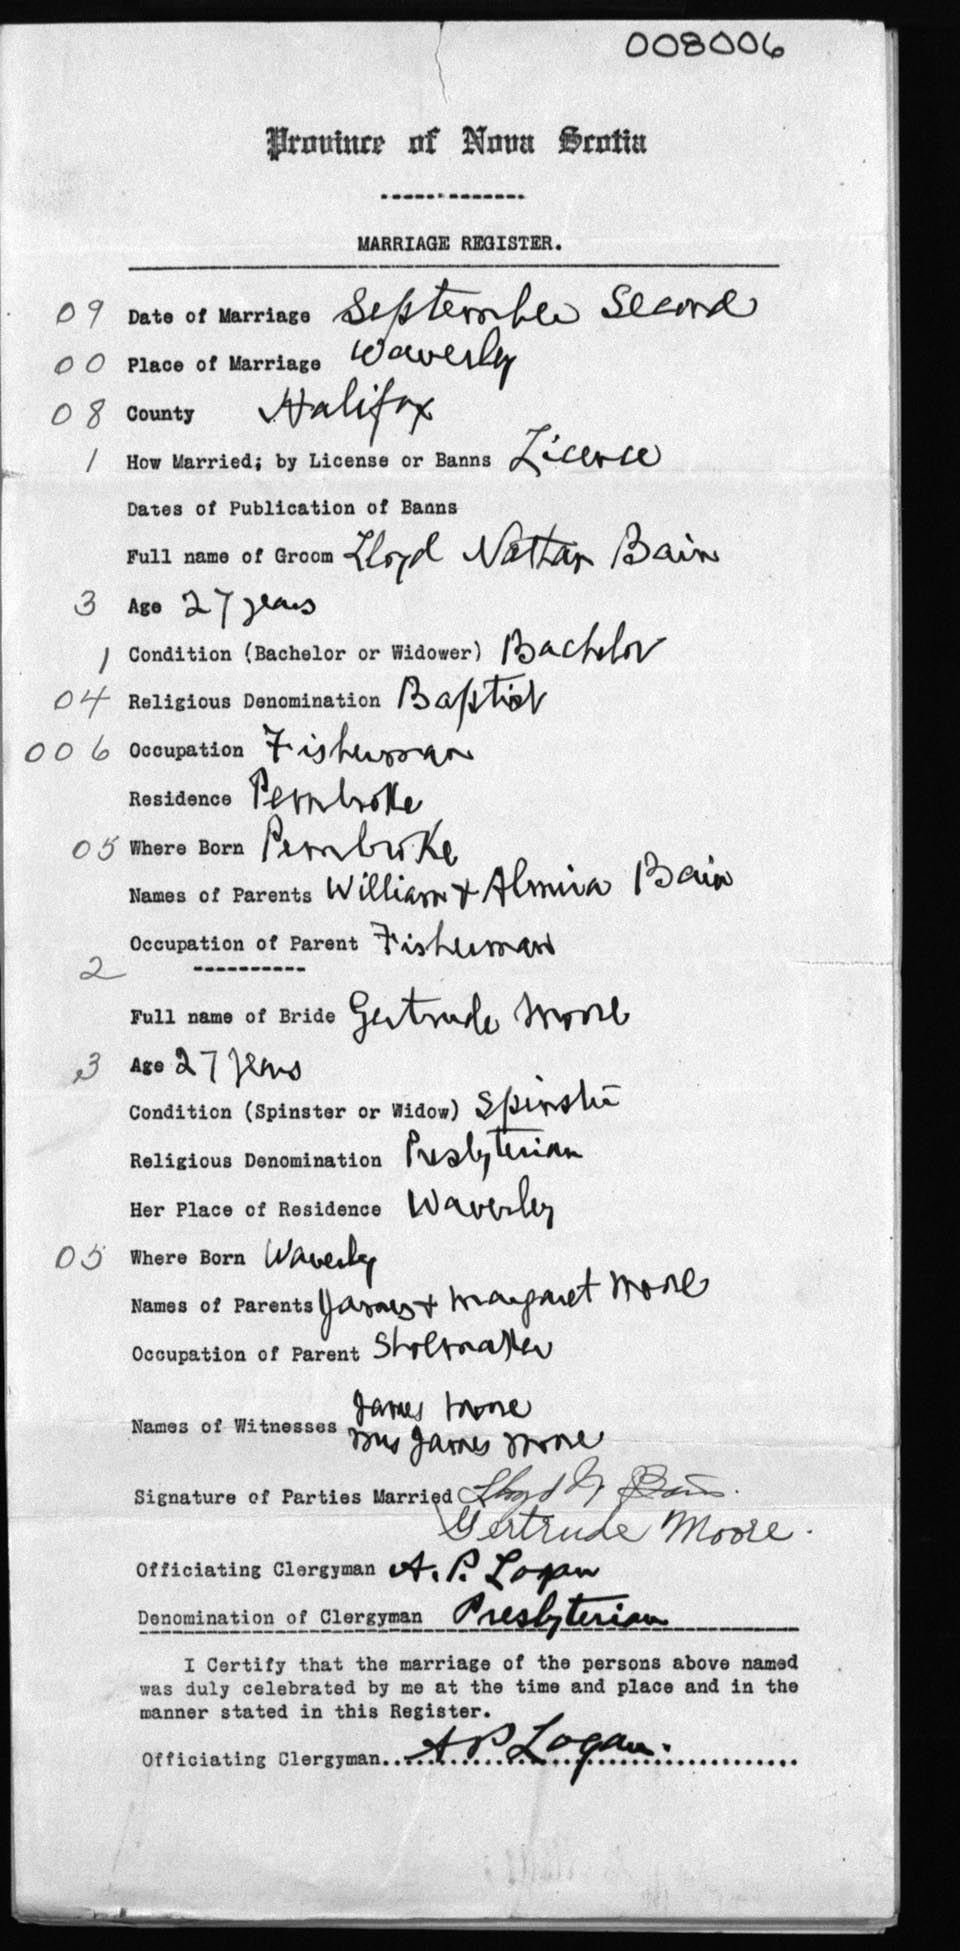 008006
Province of Nova Scotia
MARRIAGE REGISTER.
09 Date of Marriage September Second
00 Place of Marriage Waverly
08 County Halifax
1 How Married; by License or Banns Licence
Dates of Publication of Banns
Full name of Groom Lloyd Nathan Bain
3 Age 27 years
1 Condition (Bachelor or Widower) Bachelor
04 Religious Denomination Baptist
006 Occupation Fisherman
Residence Pembroke
05 Where Born Pembroke
Names of Parents William + Almira Bain
Occupation of Parent Fisherman
2
Full name of Bride Gertrude Moore
3 Age 27 years
Condition (Spinster or Widow) Spinster
Religious Denomination Presbyterian
Her Place of Residence Waverley
05 Where Born Waverly
Names of Parents James + Margaret Moore
Occupation of Parent Shoemaker
Names of Witnesses James Moore
Mrs James Moore
Signature of Parties Married Lloyd N Bain.
Gertrude Moore.
Officiating Clergyman A. P. Logan
Denomination of Clergyman Presbyterian
I Certify that the marriage of the persons above named
was duly celebrated by me at the time and place and in the
manner stated in this Register.
Officiating Clergyman.. A P Logan.